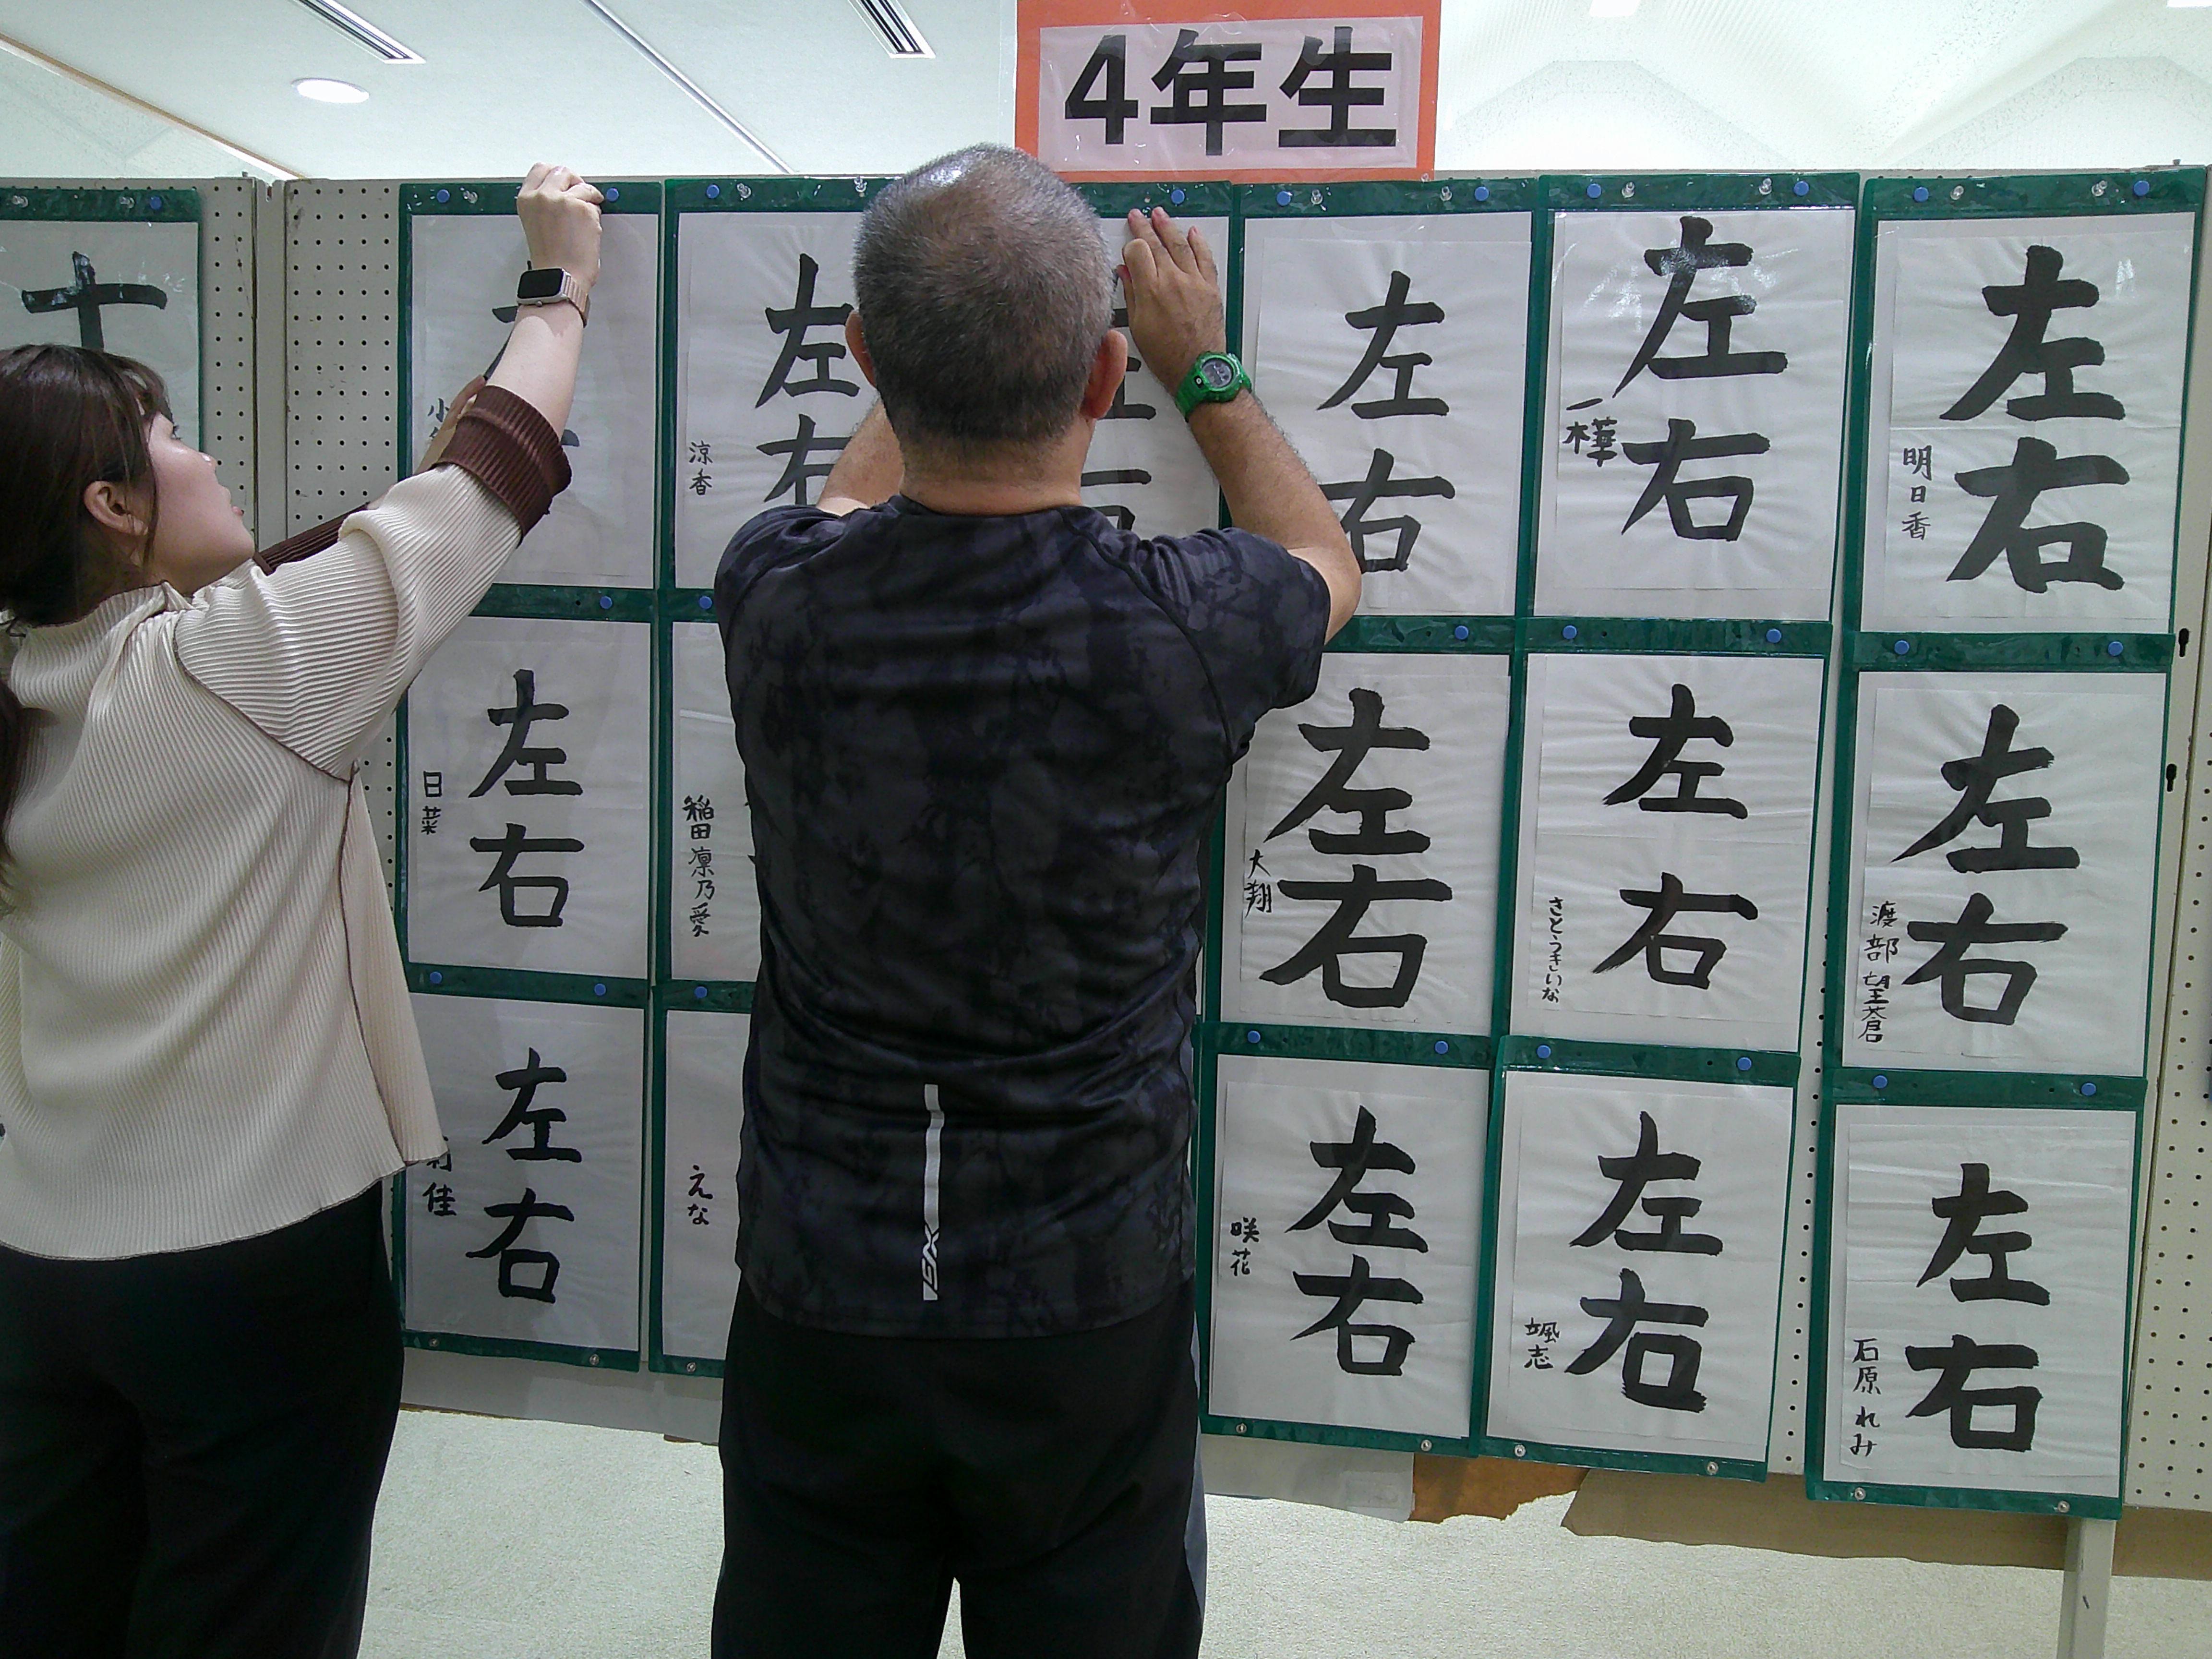 4年生
左
右
明日香
左
右
一樺
左
右
左
右
涼香
小
左
右
渡部望蒼
左
右
さとうきいな
左
右
大翔
稲田凛乃愛
左
右
日菜
左
右
石原れみ
左
右
颯志
左
右
咲花
えな
左
右
佳